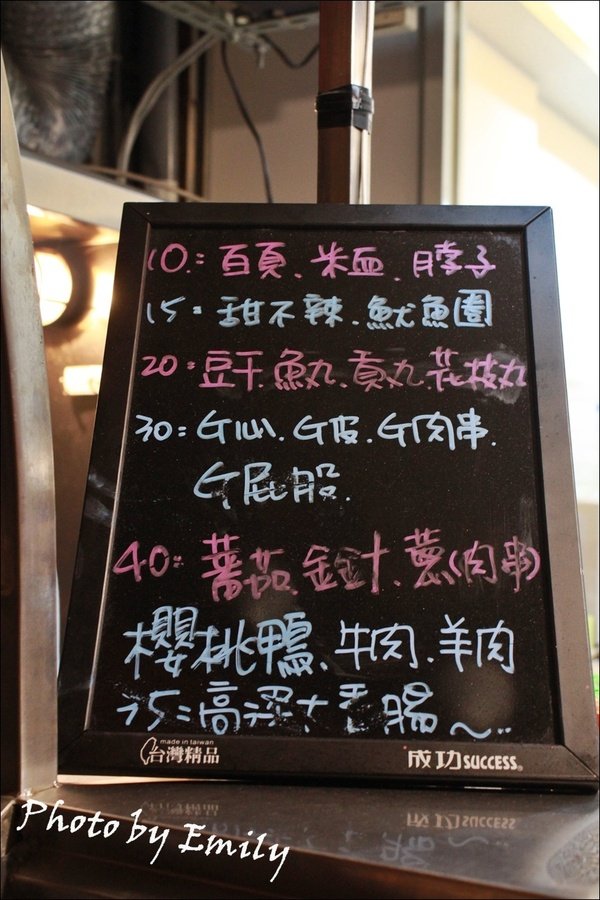 10:百頁、米血、脖子
15:甜不辣.魷魚圈
20:豆干.魚丸.貢丸.花枝丸
30:G心.G皮.G肉串.
G屁股.
40:蕃茄.金針.蔥(肉串)
櫻桃鴨、牛肉.羊肉
75:高粱大香腸~..
made in taiwan
台灣精品
成功SUCCESS®
Photo by Emily